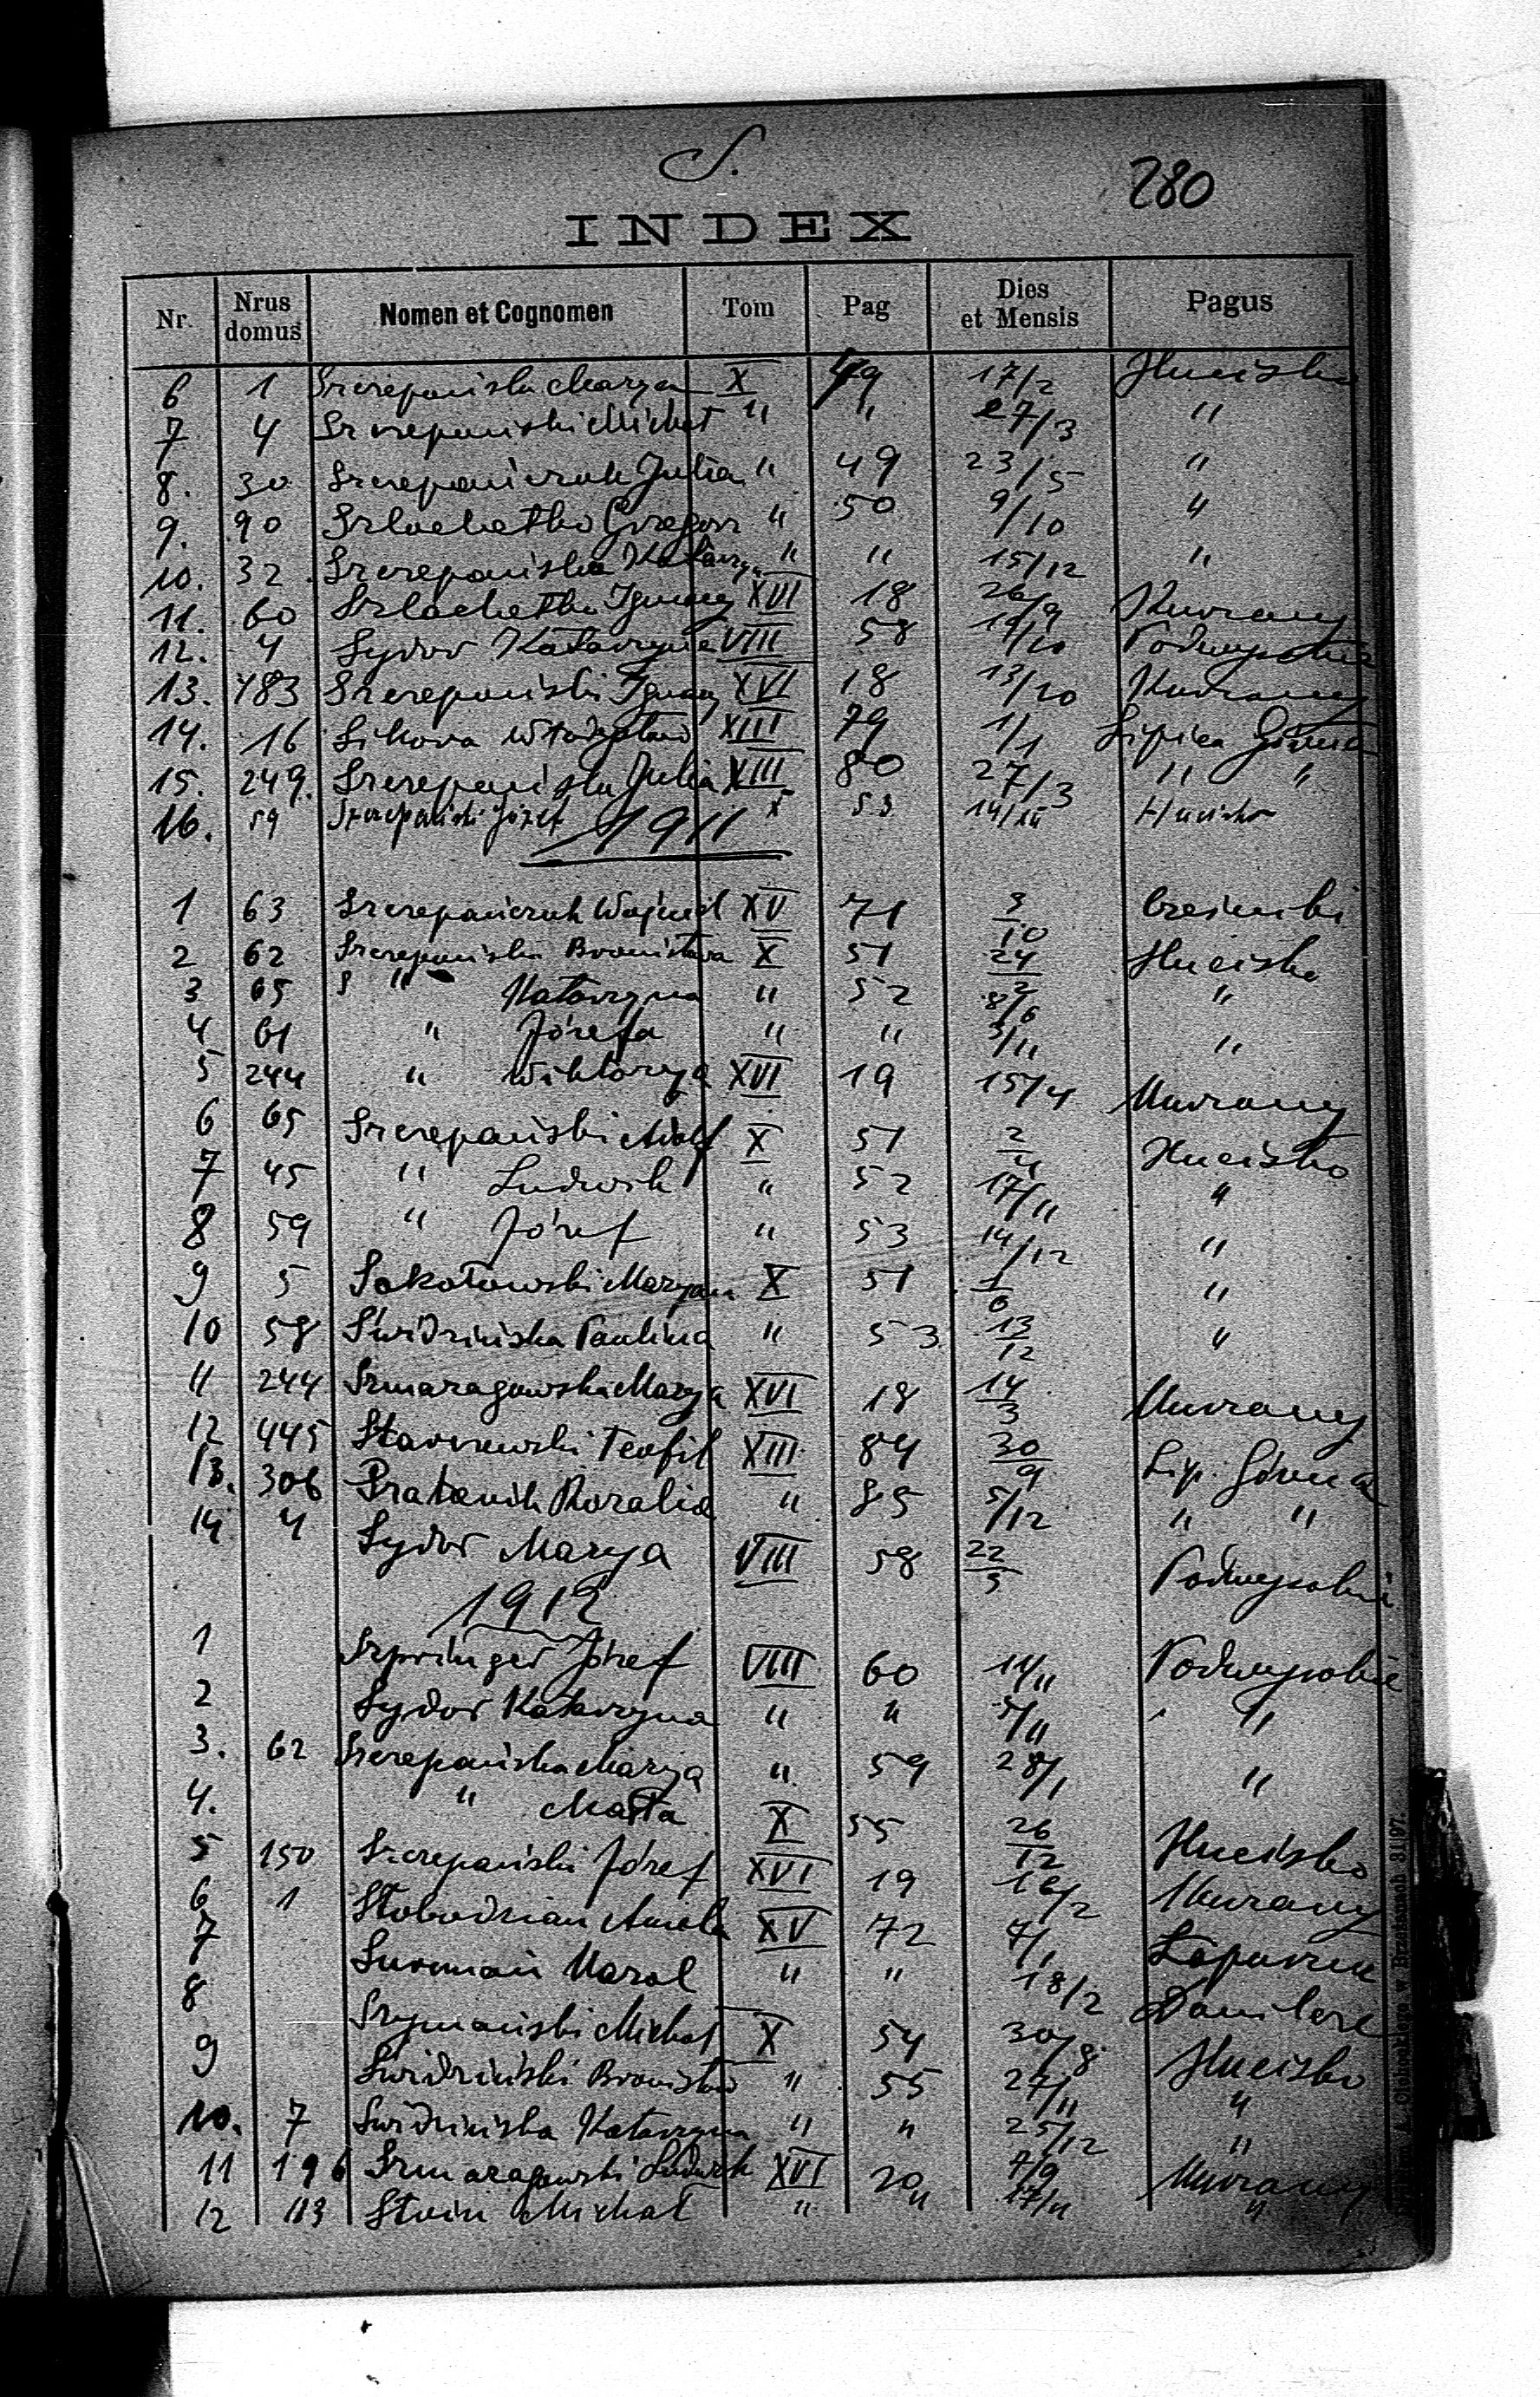 S.
280
INDEX
Nr. Nrus domus Nomen et Cognomen Tom Pag Dies et Mensis Pagus
6 1 Szczepańska Marya X 49 17/2 Hucisko
7 4 Szczepański Michał " " 27/3 "
8. 30 Szczepanczuk Julia " 49 23/5 "
9. 90 Szlachetko Grzegorz " 50 9/10 "
10. 32 Szczepańska Katarzyna " " 15/12 "
11. 60 Szlachetko Ignacy XVI 18 26/9 Kurzany
12. 4 Sydor Katarzyna VIII 58 /10 Podwysokie
13. 483 Szczepański Ignacy XVI 18 13/10 Kurzany
14. 16 Sikora Władysław XIII 79 1/1 Lipica Górna
15. 249. Szczepańska Julia XIII 80 27/3 " "
16. 59 Szczepański Józef X 53 14/XII Hucisko
1911
1 63 Szczepanczuk XV 71 3/10
2 62 Szczepańska Bronisława X 51 24/2 Hucisko
3 65 " Katarzyna " 52 8/6 "
4 61 " Józefa " " 3/11 "
5 244 " Wiktorya XVI 19 15/4 Kurzany
6 65 Szczepański Adolf X 51 Hucisko
7 45 " Ludwik " 52 17/11 "
8 59 " Józef " 53 14/12 "
9 5 Sokołowski Maryan X 51 1/6 "
10 58 Świdzińska Paulina " 53 13/12 "
11 244 Szmaragowska Marya XVI 18 14/3 Kurzany
12 445 Starzewski Teofil XIII 84 30/9 Lip. Górna
13. 306 Rozalia " 85 5/12 " "
14 4 Sydor Marya VIII 58 22/5 Podwysokie
1912
1 Szpringer Józef VIII 60 14/11 Podwysokie
2 Sydor Katarzyna " " 5/11 "
3. 62 Szczepańska Marya " 59 28/1 "
4. " Marta X 55 26/12 Hucisko
5 150 Szczepański Józef XVI 19 16/2 Kurzany
6 1 Słobodzian Aniela XV 72 7/1
7 Surman Karol " " 18/2
8 Szymański Michał X 54 30/8 Hucisko
9 Świdziński Bronisław " 55 27/11 "
10. 7 Świdzińska Katarzyna " " 25/12 "
11 196 Szmaragowski Ludwik XVI 20 7/9 Kurzany
12 113 Michał " " 17/11 "